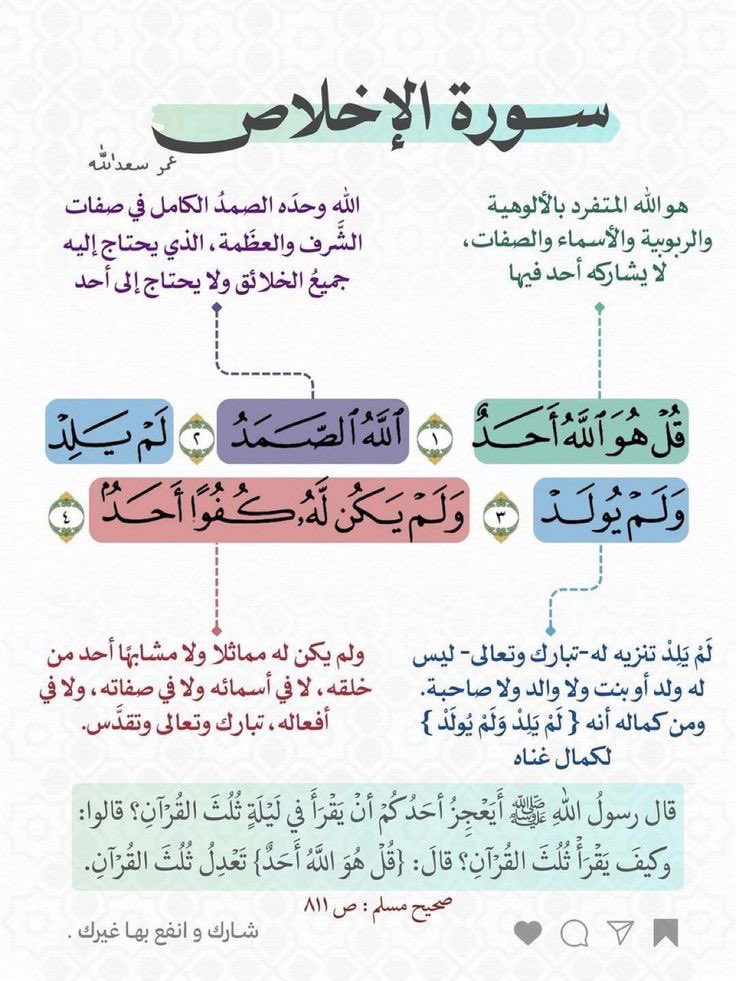 سورة الإخلاص
عمر سعدالله
هو الله المتفرد بالألوهية
والربوبية والأسماء والصفات،
لا يشاركه أحد فيها
الله وحدَه الصمدُ الكامل في صفات
الشَّرف والعظَمة، الذي يحتاج إليه
جميعُ الخلائق ولا يحتاج إلى أحد
قُلۡ هُوَ ٱللَّهُ أَحَدٌ ١ ٱللَّهُ ٱلصَّمَدُ ٢ لَمۡ يَلِدۡ
وَلَمۡ يُولَدۡ ٣ وَلَمۡ يَكُن لَّهُۥ كُفُوًا أَحَدُۢ ٤
لَمْ يَلِدْ تنزيه له -تبارك وتعالى- ليس
له ولد أو بنت ولا والد ولا صاحبة.
ومن كماله أنه { لَمْ يَلِدْ وَلَمْ يُولَدْ }
لكمال غناه
ولم يكن له مماثلا ولا مشابهًا أحد من
خلقه، لا في أسمائه ولا في صفاته، ولا في
أفعاله، تبارك وتعالى وتقدَّس.
قال رسولُ اللهِ ﷺ أَيَعْجِزُ أحَدُكُمْ أنْ يَقْرَأَ في لَيْلَةٍ ثُلُثَ القُرْآنِ؟ قالوا:
وكيفَ يَقْرَأْ ثُلُثَ القُرْآنِ؟ قالَ: {قُل هُوَ اللَّهُ أَحَدٌ} تَعْدِلُ ثُلُثَ القُرْآنِ.
صحيح مسلم : ص ٨١١
شارك و انفع بها غيرك .